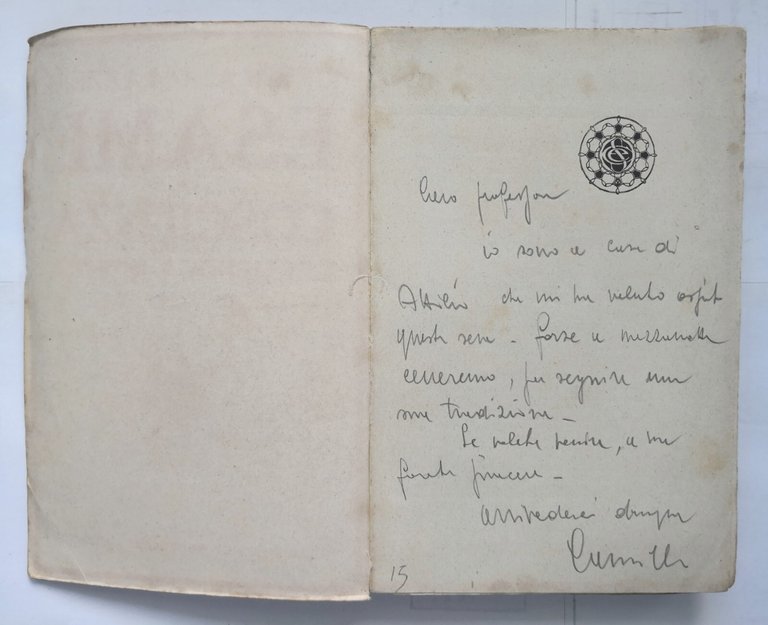 Caro professore
io sono a casa di
Attilio che mi ha voluto ospite
questa sera - forse a mezzanotte
ceneremo, per seguire una
sua tradizione -
Se volete venire, a me
farete piacere -
arrivederci dunque
Camilla
15